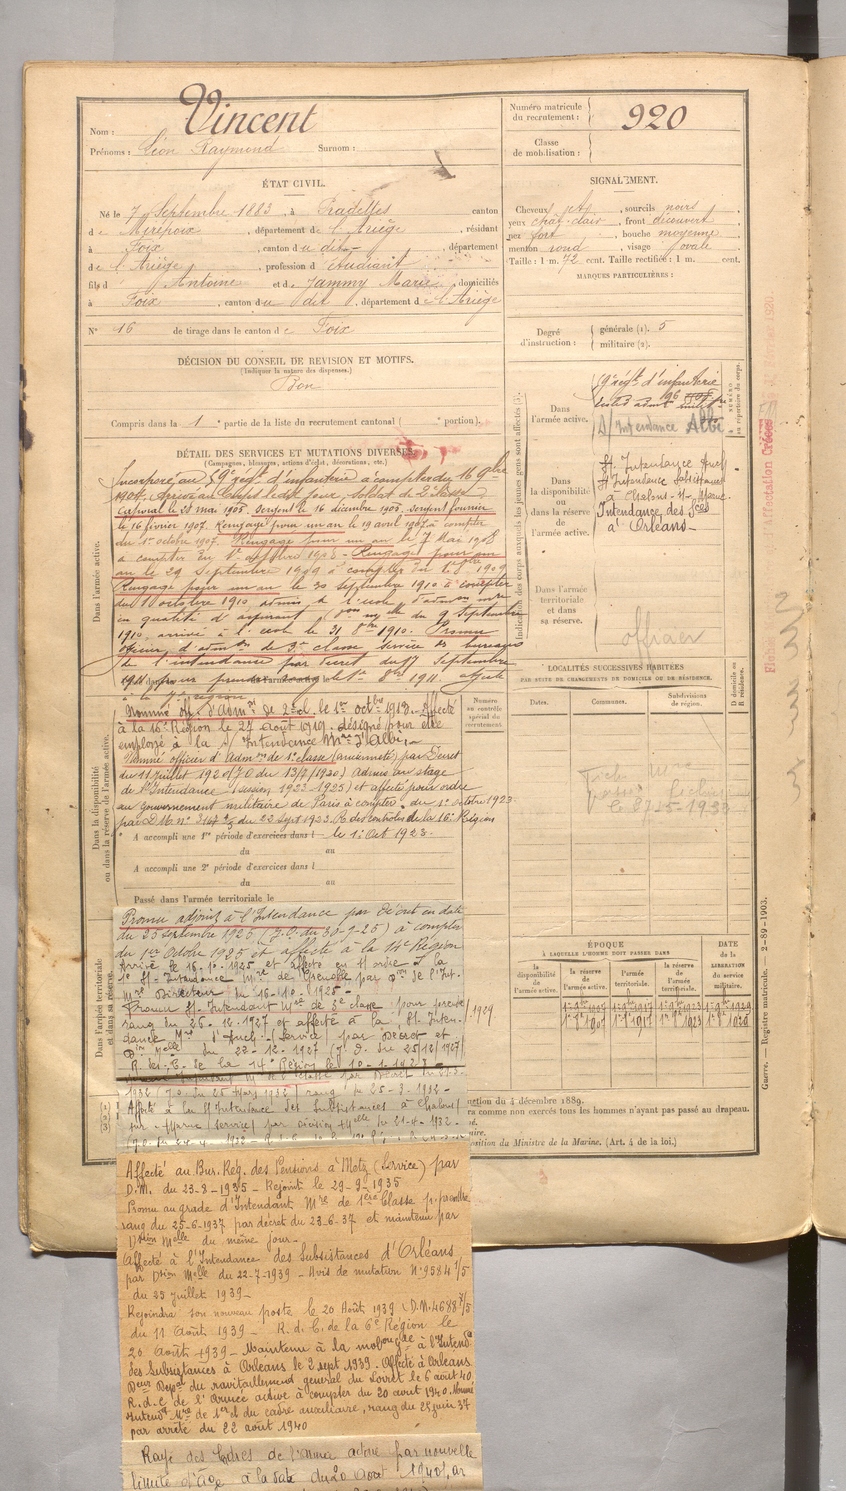 Nom : Vincent
Prénoms : Léon Raymond Surnom :
Numéro matricule du recrutement : 920
Classe de mobilisation :
ÉTAT CIVIL.
Né le 7 Septembre 1883, à Pradettes canton
de Mirepoix, département de l'Ariège, résidant
à Foix, canton du dit, département
de l'Ariège, profession d'étudiant
fils d'Antoine et de Jammy Marie, domiciliés
à Foix, canton du dit, département de l'Ariège
N° 16 de tirage dans le canton de Foix
SIGNALEMENT.
Cheveux, sourcils noirs,
yeux chât. clair, front découvert
nez fort, bouche moyenne
menton rond, visage ovale
Taille : 1 m. 72 cent. Taille rectifiée : 1 m. cent.
MARQUES PARTICULIÈRES :
Degré d'instruction : générale (1). 5
militaire (2).
DÉCISION DU CONSEIL DE REVISION ET MOTIFS.
(Indiquez la nature des dispenses.)
Bon
Compris dans la 1e partie de la liste du recrutement cantonal ( portion).
DÉTAIL DES SERVICES ET MUTATIONS DIVERSES.
(Campagnes, blessures, actions d'éclat, décorations, etc.)
Incorporé au 59e régt d'infanterie à compter du 16 9bre
1904. Arrivé au Corps ledit jour, soldat de 2e classe
Caporal le 28 mai 1905. Sergent le 16 décembre 1905. Sergent fourrier
le 16 février 1907. Rengagé pour un an le 19 avril 1907 à compter
du 1er octobre 1907. Rengagé pour un an le 7 Mai 1908
à compter du 1er octobre 1908. Rengagé pour un
an le 29 Septembre 1909 à compter du 1er 8bre 1909
Rengagé pour un an le 30 septembre 1910 à compter
du 1 octobre 1910, admis à l'école d'admon mre
en qualité d'aspirant (Don mlle du 9 Septembre
1910, arrivé à l'école le 31 8bre 1910. Promu
officier d'admon de 3e classe service des bureaux
de l'intendance par décret du 17 Septembre
1911 pour prendre rang le 1er 8bre 1911. Affecté
à la 7e région
Nommé off. d'Admon de 2e cl. le 1er octbre 1913. Affecté
à la 16e Région le 27 août 1919. désigné pour être
employé à la S/ Intendance Mre d'Albi.
Nommé officier d'Admon de 1e classe (ancienneté) par Décret
du 11 juillet 1920 (J.O. du 13/7/1920) Admis au stage
de l'Intendance (session 1923-1925) et affecté pour ordre
au gouvernement militaire de Paris à compter du 1er octobre 1923
par D.M. n° du 22 sept 1923. R. des contrôles de la 16e Région
A accompli une 1re période d'exercices dans l le 1er Oct 1923.
du au
A accompli une 2e période d'exercices dans l
du au
Passé dans l'armée territoriale le
Promu adjoint à l'Intendance par décret en date
du 23 septembre 1925 (J.O. du 30-9-25) à compter
du 1er Octobre 1925 et affecté à la 14e Région
Arrivé le 16-10-1925 et affecté en S/ ordre à la
1e S/-Intendance Mre de Grenoble par Don de l'Int.
Mre Directeur du 16-10-1925-
Promu S/-Intendant Mre de 3e classe pour prendre
rang du 25-12-1927 et affecté à la S/-Inten-
dance Mre d'Auch (service) par Décret et
Don Mlle du 22-12-1927 (J.O. du 25/12/1927)
R. des C. de la 14e Région le 10-1-1928
1932 (J.O. du 25 Mars 1932) rang du 25-3-1932-
Affecté à la S/Intendance des Subsistances à Châlons/
sur-Marne (service) par décision Mlle du 21-4-1932-
Affecté au Bur. Rég. des Pensions à Metz (Service) par
D.M. du 23-8-1935 - Rejoint le 29-9-1935
Promu au grade d'Intendant Mre de 1ère Classe p. prendre
rang du 25-6-1937 par décret du 23-6-37 et maintenu par
Dsion Melle du même jour-
Affecté à l'Intendance des Subsistances d'Orléans
par Dsion Melle du 22-7-1939 - Avis de mutation N° 9584 1/5
du 25 juillet 1939-
Rejoindra son nouveau poste le 20 Août 1939 (D.M. 4688 1/5
du 11 Août 1939 - R.d.C. de la 6e Région le
20 Août 1939 - Maintenu à la à l'Intend
des Subsistances à Orléans le 2 sept 1939. Affecté à Orléans
du ravitaillement général du Loiret le 6 août 40.
R.d.C de l'Armée active à compter du 20 août 1940. Nommé
Intendt Mre de 1e cl du cadre auxiliaire, rang du 25 juin 37
par arrêté du 22 août 1940
Rayé des Cadres de l'armée active par nouvelle
limite d'âge à la date du 20 Août 1940 par
Dans l'armée active.
Dans la disponibilité ou dans la réserve de l'armée active.
Dans l'armée territoriale et dans sa réserve.
Numéro au contrôle spécial du recrutement.
1929
Indication des corps auxquels les jeunes gens sont affectés
Dans l'armée active.
59e régt d'infanterie
S/ Intendance Albi
Dans la disponibilité ou dans la réserve de l'armée active.
S/ Intendance Auch
S/ Intendance Subsistances
à Châlons-s-Marne
Intendance des Sces
à Orléans-
Dans l'armée territoriale et dans sa réserve.
officier
LOCALITÉS SUCCESSIVES HABITÉES
PAR SUITE DE CHANGEMENTS DE DOMICILE OU DE RÉSIDENCE.
Dates. Communes. Subdivisions de région. D domicile ou R résidence.
ÉPOQUE
À LAQUELLE L'HOMME DOIT PASSER DANS
la disponibilité de l'armée active. la réserve de l'armée active. l'armée territoriale. la réserve de l'armée territoriale. DATE de la LIBÉRATION du service militaire.
1er 8bre 1907 1er 8bre 1917 1er 8bre 1923 1er 8bre 1929
ction du 4 décembre 1889.
ra comme non exercés tous les hommes n'ayant pas passé au drapeau.
osition du Ministre de la Marine. (Art. 4 de la loi.)
Guerre. — Registre matricule. — 2-89-1903.